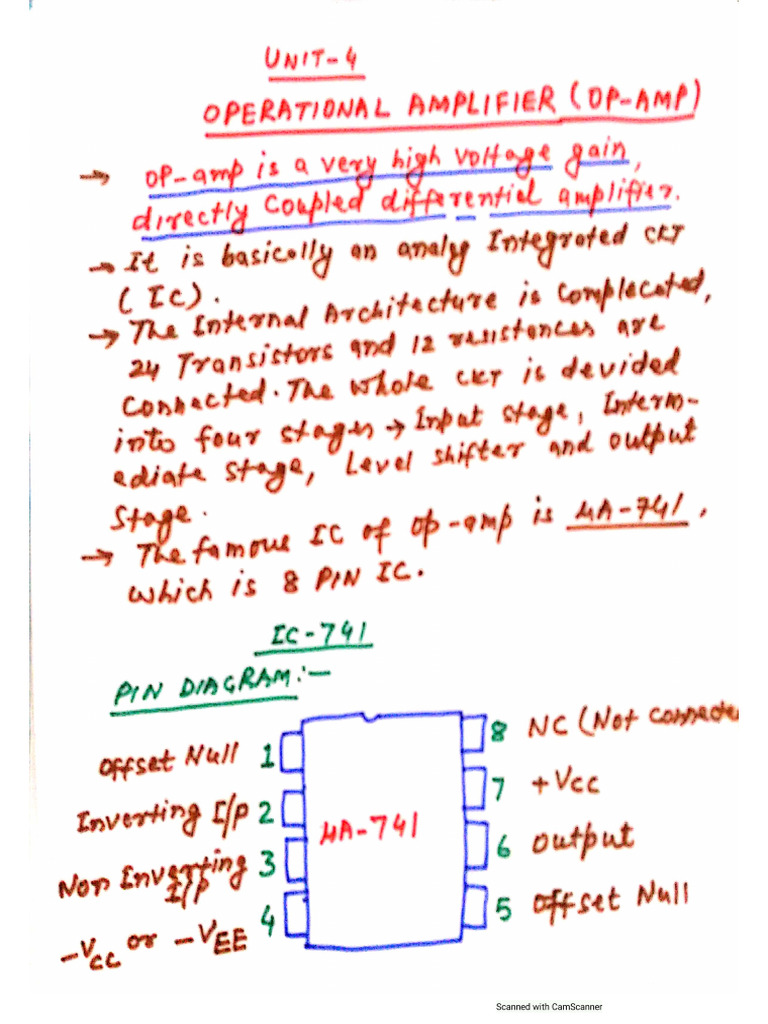 UNIT-4
OPERATIONAL AMPLIFIER (OP-AMP)
→ OP-amp is a very high voltage gain,
directly coupled differential amplifier.
→ It is basically an analg Integrated CKT
(IC).
→ The Internal Architecture is complecated,
24 Transistors and 12 resistances are
connected. The whole CKT is devided
into four stages → Input stage, Interm-
ediate stage, Level shifter and output
stage.
→ The famous IC of op-amp is μA-741,
which is 8 PIN IC.
IC-741
PIN DIAGRAM:-
Offset Null 1
Inverting I/p 2
Non Inverting I/P 3
-VCC or -VEE 4
μA-741
8 NC (Not connecte
7 +Vcc
6 output
5 offset Null
Scanned with CamScanner